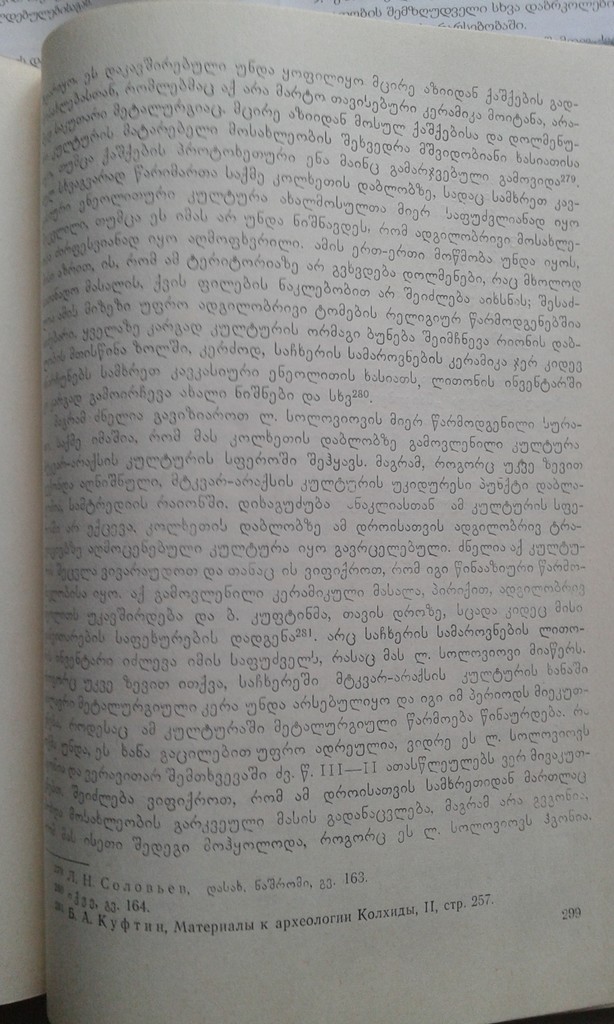 ლდებულებისაგან
ობის შემზღუდველი სხვა დაბრკოლები
არსებობაში.
ეს დაკავშირებული უნდა ყოფილიყო მცირე აზიიდან ქაშქების გად-
რომლებმაც აქ არა მარტო თავისებური კერამიკა მოიტანა, არა-
საკუთარი მეტალურგიაც. მცირე აზიიდან მოსულ ქაშქებისა და დოლმენუ-
კულტურის მატარებელი მოსახლეობის შეხვედრა მშვიდობიანი ხასიათისა
თუმცა ქაშქების პროტოხეთური ენა მაინც გამარჯვებული გამოვიდა²⁷⁹.
სხვაგვარად წარიმართა საქმე კოლხეთის დაბლობზე, სადაც სამხრეთ კავ-
ენეოლითური კულტურა ახალმოსულთა მიერ საფუძვლიანად იყო
თუმცა ეს იმას არ უნდა ნიშნავდეს, რომ ადგილობრივი მოსახლე-
ძირფესვიანად იყო აღმოფხვრილი. ამის ერთ-ერთი მოწმობა უნდა იყოს,
აზრით, ის, რომ ამ ტერიტორიაზე არ გვხვდება დოლმენები, რაც მხოლოდ
მასალის, ქვის ფილების ნაკლებობით არ შეიძლება აიხსნას; შესაძ-
ამის მიზეზი უფრო ადგილობრივი ტომების რელიგიურ წარმოდგენებშია
ყველაზე კარგად კულტურის ორმაგი ბუნება შეიმჩნევა რიონის დაბ-
მთისწინა ზოლში, კერძოდ, საჩხერის სამაროვნების კერამიკა ჯერ კიდევ
სამხრეთ კავკასიური ენეოლითის ხასიათს, ლითონის ინვენტარში
კარგად გამოირჩევა ახალი ნიშნები და სხვ²⁸⁰.
მაგრამ ძნელია გავიზიაროთ ლ. სოლოვიოვის მიერ წარმოდგენილი სურა-
საქმე იმაშია, რომ მას კოლხეთის დაბლობზე გამოვლენილი კულტურა
მტკვარ-არაქსის კულტურის სფეროში შეჰყავს. მაგრამ, როგორც უკვე ზევით
აღნიშნული, მტკვარ-არაქსის კულტურის უკიდურესი პუნქტი დაბლა-
სამტრედიის რაიონში. დისაგუძუბა ნაკლიასთან ამ კულტურის სფე-
არ ექცევა. კოლხეთის დაბლობზე ამ დროისათვის ადგილობრივ ტრა-
აღმოცენებული კულტურა იყო გავრცელებული. ძნელია აქ კულტუ-
შეცვლა ვივარაუდოთ და თანაც ის ვიფიქროთ, რომ იგი წინააზიური წარმო-
იყო. აქ გამოვლენილი კერამიკული მასალა, პირიქით, ადგილობრივ
უკავშირდება და ბ. კუფტინმა, თავის დროზე, სცადა კიდეც მისი
განვითარების საფეხურების დადგენა²⁸¹. არც საჩხერის სამაროვნების ლითო-
ინვენტარი იძლევა იმის საფუძველს, რასაც მას ლ. სოლოვიოვი მიაწერს.
როგორც უკვე ზევით ითქვა, საჩხერეში მტკვარ-არაქსის კულტურის ხანაში
მეტალურგიული კერა უნდა არსებულიყო და იგი იმ პერიოდს მიეკუთ-
როდესაც ამ კულტურაში მეტალურგიული წარმოება წინაურდება. რა
უნდა, ეს ხანა გაცილებით უფრო ადრეულია, ვიდრე ეს ლ. სოლოვიოვს
და ვერავითარ შემთხვევაში ძვ. წ. III—II ათასწლეულებს ვერ მივაკუთ-
შეიძლება ვიფიქროთ, რომ ამ დროისათვის სამხრეთიდან მართლაც
მოსახლეობის გარკვეული მასის გადანაცვლება, მაგრამ არა გვგონია,
მას ისეთი შედეგი მოჰყოლოდა, როგორც ეს ლ. სოლოვიოვს ჰგონია.
²⁷⁹ Л. Н. Соловьев, დასახ. ნაშრომი, გვ. 163.
²⁸⁰ იქვე, გვ. 164.
²⁸¹ Б. А. Куфтин, Материалы к археологии Колхиды, II, стр. 257.
299